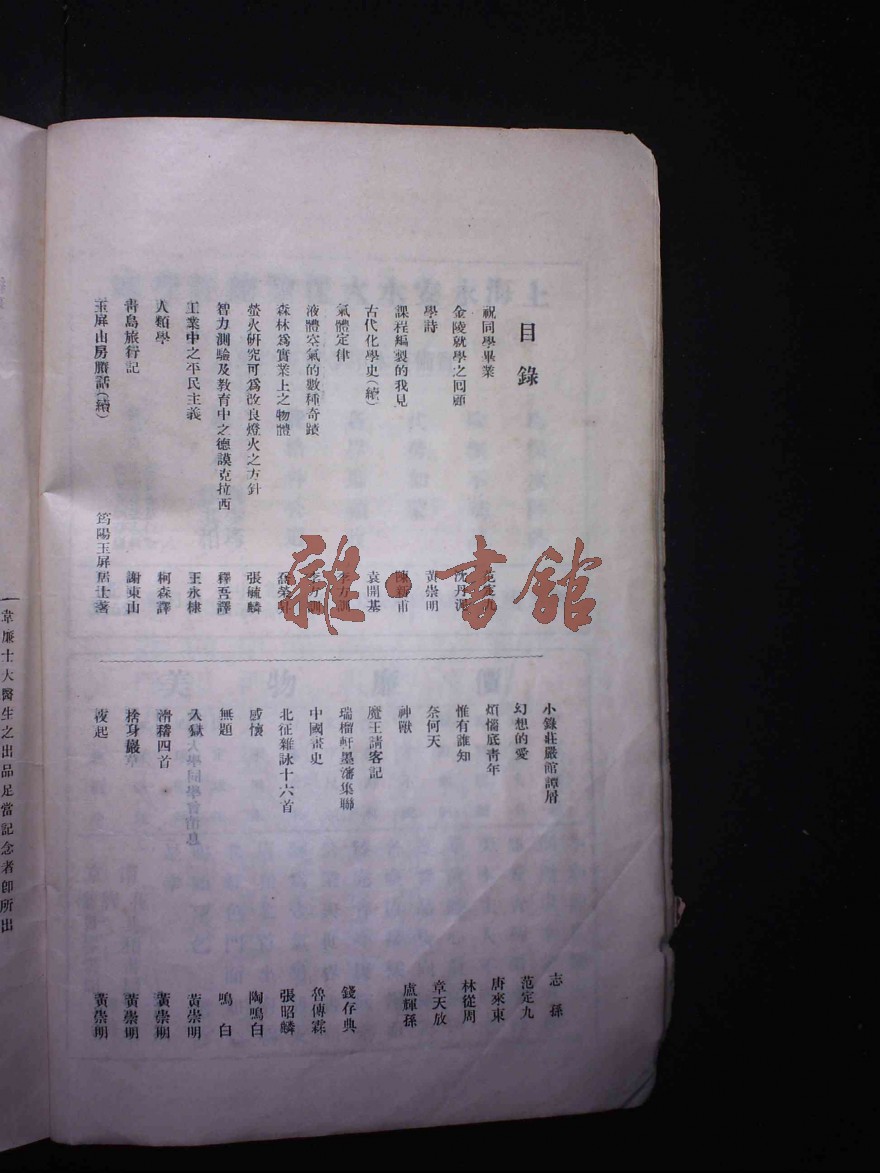 目錄
祝同學畢業 范定九
金陵就學之回顧
學詩 黃崇明
課程編製的我見
古代化學史(續) 袁開基
氣體定律
液體空氣的數種奇蹟
森林爲實業上之物體
螢火硏究可爲改良燈火之方針 張毓麟
智力測驗及教育中之德謨克拉西 釋吾譯
工業中之平民主義 王永棣
人類學 柯森譯
靑島旅行記 謝東山
玉屏山房賸話(續) 筠陽玉屏居士著
小錄莊嚴館譚屑 志孫
幻想的愛 范定九
煩惱底靑年 唐來東
惟有誰知 林從周
奈何天 章天放
神獸 盧輝孫
魔王請客記
瑞榴軒墨瀋集聯 錢存典
中國畫史 魯傳霖
北征雜詠十六首 張昭麟
感懷 陶鳴白
無題 鳴白
入獄 黃崇明
滑稽四首 黃崇明
捨身巖草 黃崇明
夜起 黃崇明
韋廉士大醫生之出品足當記念者卽所出
雜·書館